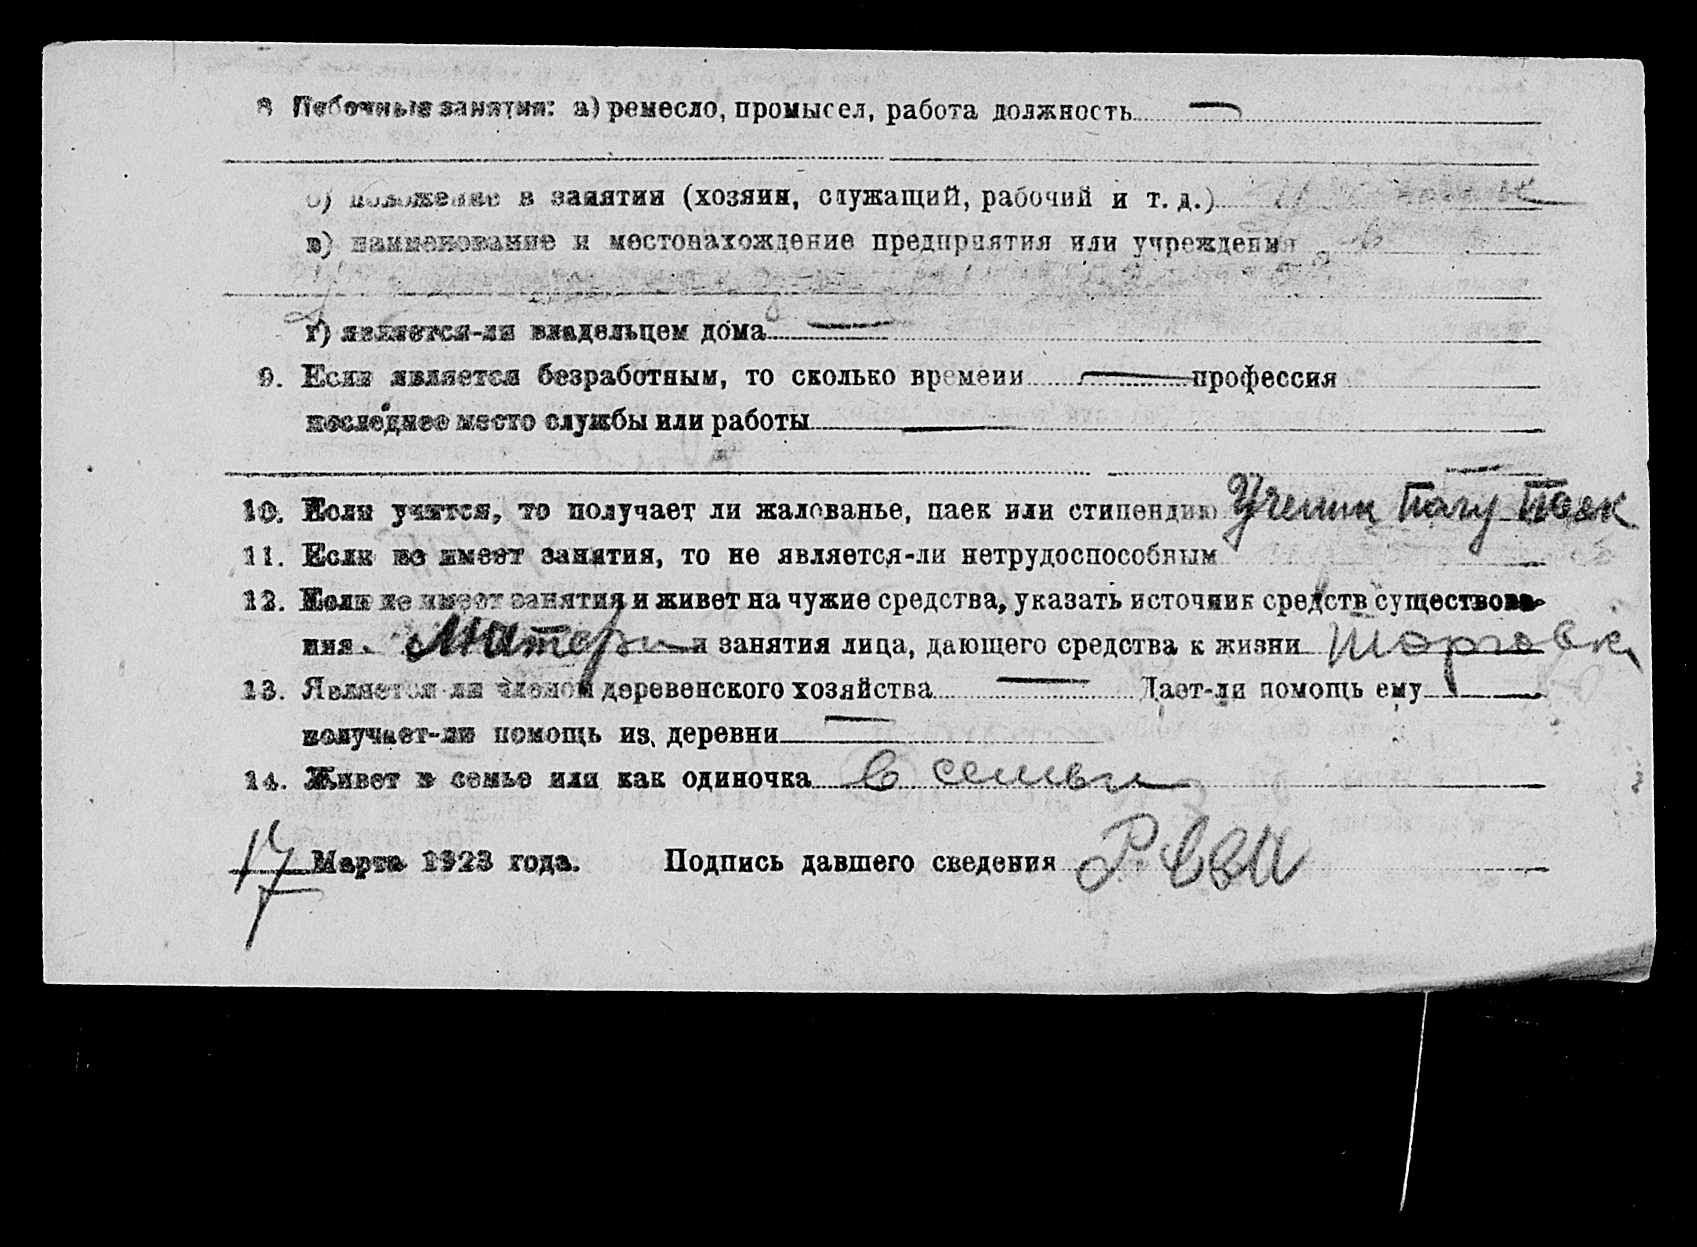 8 Побочные занятия: а) ремесло, промысел, работа должность —
б) положение в занятии (хозяин, служащий, рабочий и т. д.)
в) наименование и местонахождение предприятия или учреждения
г) является-ли владельцем дома —
9. Если является безработным, то сколько времени — профессия
последнее место службы или работы —
10. Если учится, то получает ли жалованье, паек или стипендию Ученик Палу Паек
11. Если не имеет занятия, то не является-ли нетрудоспособным
12. Если не имеет занятия и живет на чужие средства, указать источник средств существова-
ния. Матери и занятия лица, дающего средства к жизни Торговк
13. Является ли членом деревенского хозяйства — Дает-ли помощь ему —
получает-ли помощь из деревни —
14. Живет в семье или как одиночка в семьи
17 Марта 1923 года. Подпись давшего сведения